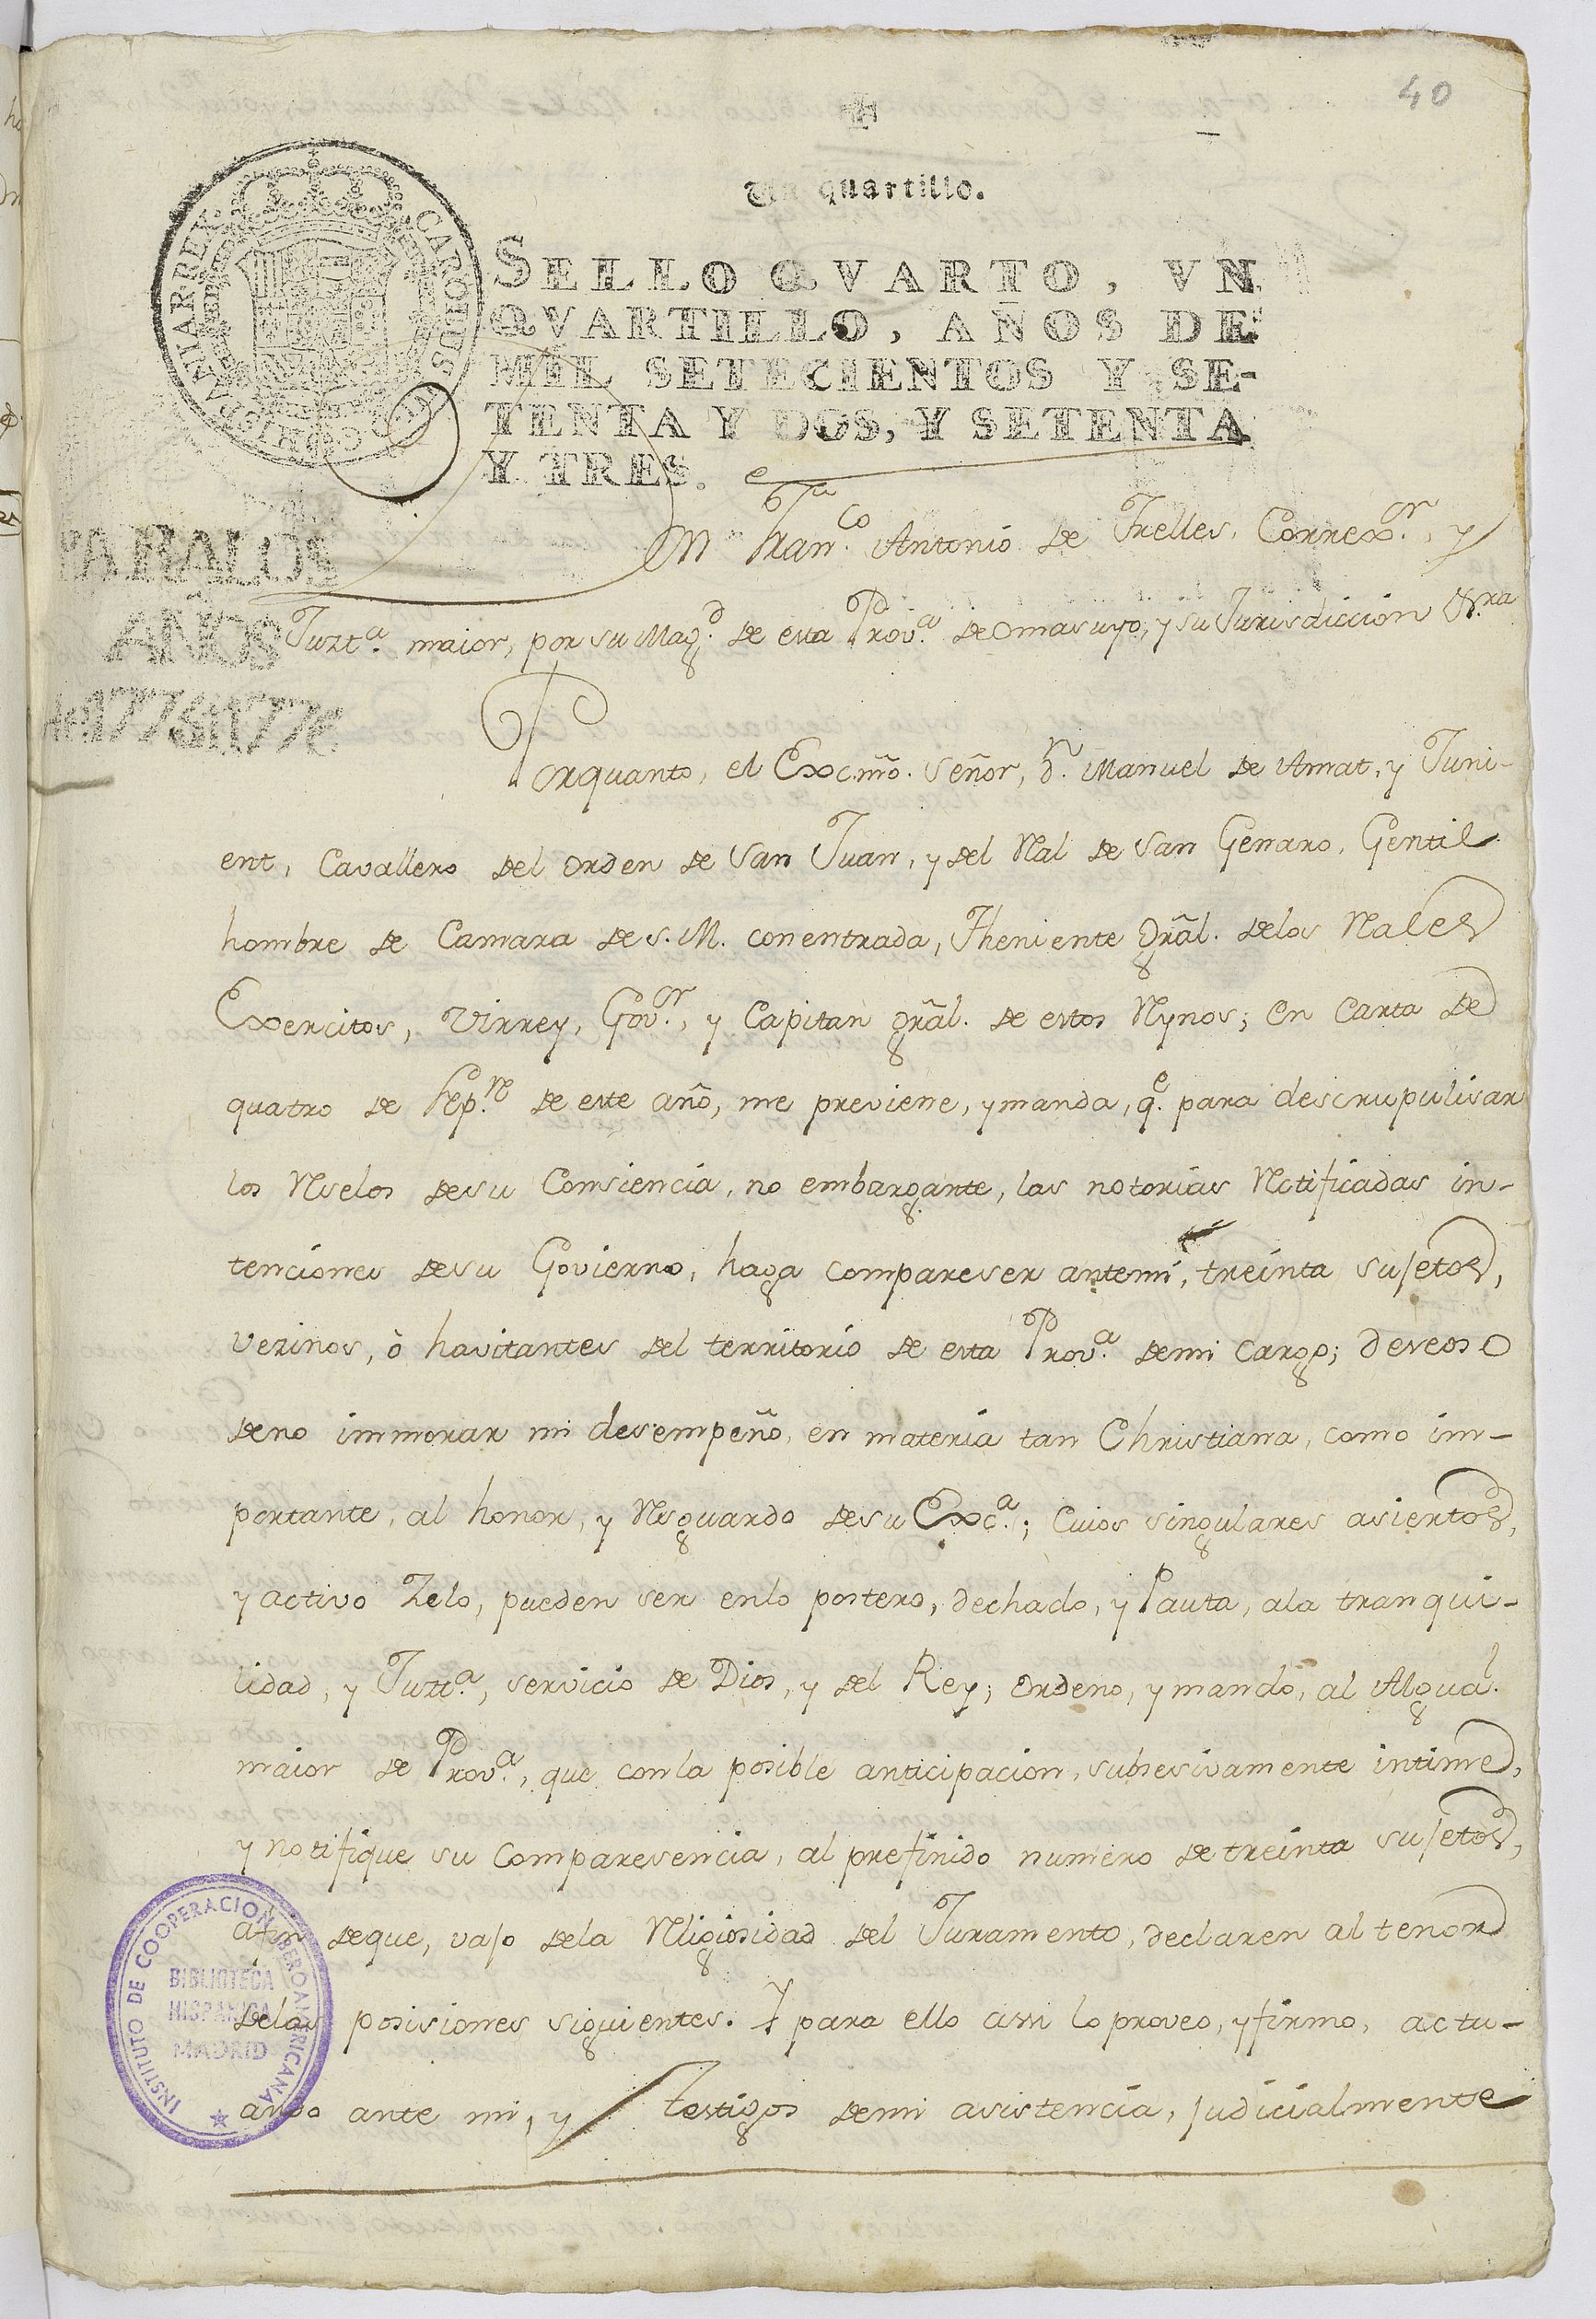 40
Un quartillo.
CAROLUS III D G HISPANIAR REX
SELLO QVARTO, VN
QVARTILLO, AÑOS DE
MIL SETECIENTOS Y SE-
TENTA Y DOS, Y SETENTA
Y TRES.
PARA LOS
AÑOS
de 1775 i 1776
Dn Franco. Antonio de Trelles, Correxor., y
Juzta. maior, por su Magd. de esta Prova. de Omasuyo, y su Jurisdiccion &ra
Porquanto, el Excmõ. Señor, Dn. Manuel de Amat, y Juni-
ent, Cavallero del Orden de San Juan, y del Ral de San Genaro, Gentil
hombre de Camara de S. M. con entrada, Theniente Grãl. delos Rales
Exercitos, Virrey, Govor., y Capitan grãl. de estos Rynos; en carta de
quatro de Sepre. de este año, me previene, y manda, qe. para descrupulisar
los Reselos desu Consiencia, no embargante, las notorias Retificadas in-
tenciones desu Govierno, haga compareser antemi, treinta sujetos,
vezinos, ò havitantes del territorio de esta Prova. demi cargo; deseoso
deno immorar mi desempeño, en materia tan Christiana, como im-
portante, al honor, y Resguardo desu Exca.; Cuios singulares asiertos,
y activo Zelo, pueden ser enlo postero, dechado, y Pauta, ala tranqui-
lidad, y Juzta., servicio de Dios, y del Rey; Ordeno, y mando, al Algual.
maior de Prova., que conla posible anticipacion, subsesivamente intime,
y notifique su Comparesencia, al prefinido numero de treinta sujetos,
afin deque, vajo dela Religiosidad del Juramento, declaren al tenor
delas posisiones siguientes. Y para ello assi lo proveo, y firmo, actu-
ando ante mi, y Testigos demi asistencia, judicialmente
INSTITUTO DE COOPERACION IBEROAMERICANA
BIBLIOTECA
HISPANICA
MADRID